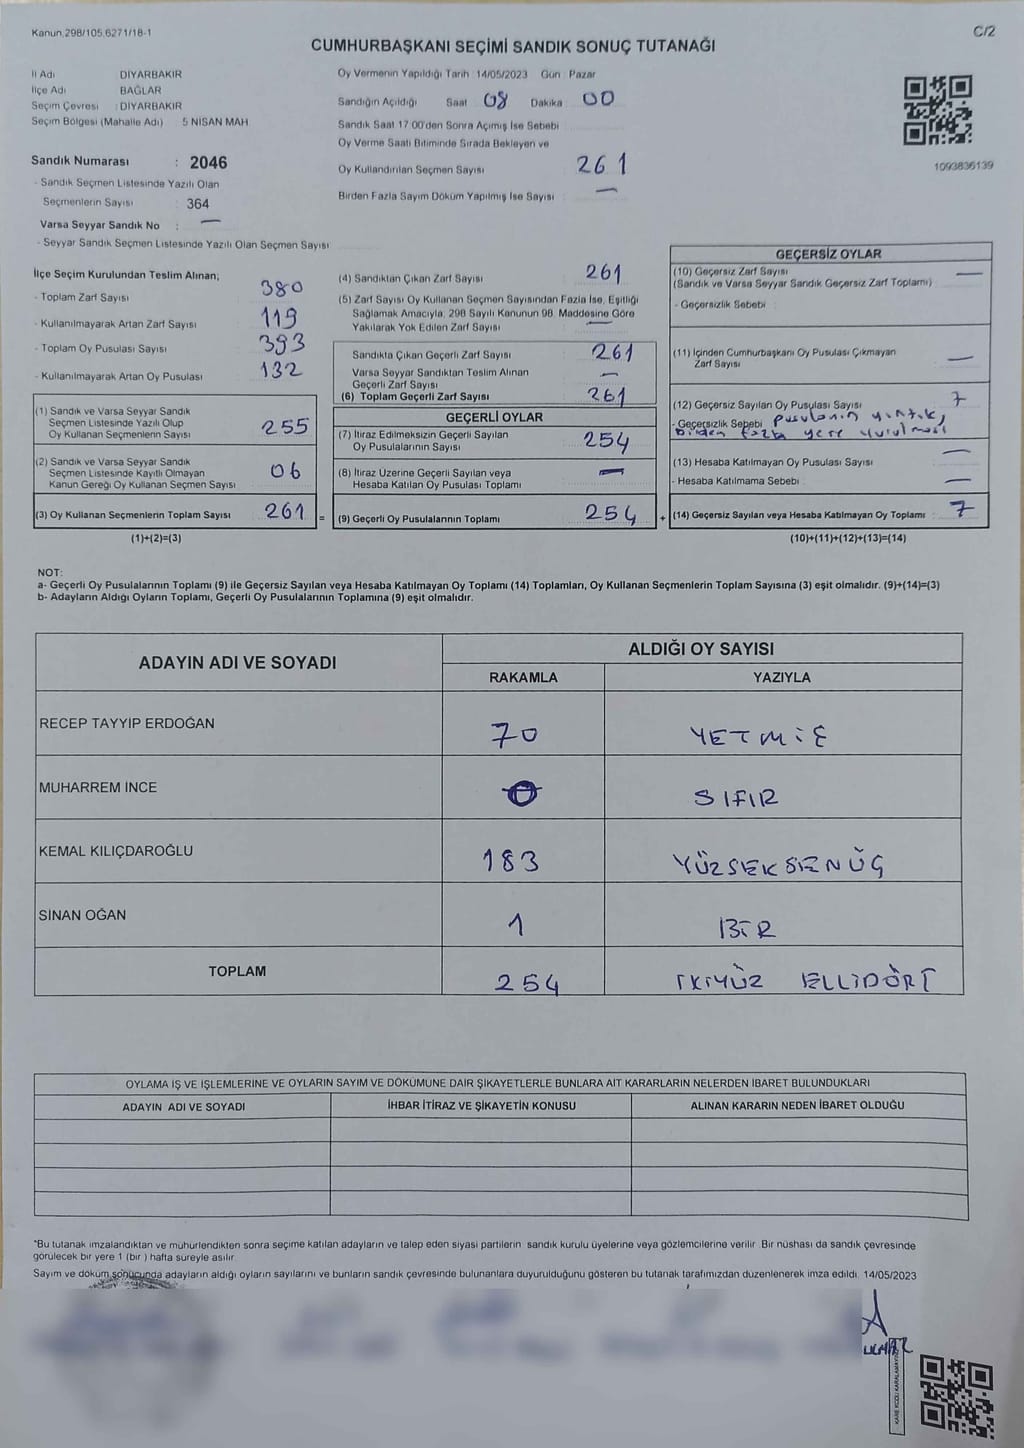 Kanun.298/105.6271/18-1
C/2
CUMHURBAŞKANI SEÇİMİ SANDIK SONUÇ TUTANAĞI
İl Adı DİYARBAKIR
İlçe Adı BAĞLAR
Seçim Çevresi : DİYARBAKIR
Seçim Bölgesi (Mahalle Adı) 5 NİSAN MAH.
Sandık Numarası : 2046
- Sandık Seçmen Listesinde Yazılı Olan
Seçmenlerin Sayısı 364
Varsa Seyyar Sandık No : —
- Seyyar Sandık Seçmen Listesinde Yazılı Olan Seçmen Sayısı
Oy Vermenin Yapıldığı Tarih 14/05/2023 Gün Pazar
Sandığın Açıldığı Saat 08 Dakika 00
Sandık Saat 17.00'den Sonra Açımış İse Sebebi
Oy Verme Saati Bitiminde Sırada Bekleyen ve
Oy Kullandırılan Seçmen Sayısı 261
Birden Fazla Sayım Döküm Yapılmış İse Sayısı —
1093836139
İlçe Seçim Kurulundan Teslim Alınan;
- Toplam Zarf Sayısı 380
- Kullanılmayarak Artan Zarf Sayısı 119
- Toplam Oy Pusulası Sayısı 393
- Kullanılmayarak Artan Oy Pusulası 132
(1) Sandık ve Varsa Seyyar Sandık
Seçmen Listesinde Yazılı Olup
Oy Kullanan Seçmenlerin Sayısı 255
(2) Sandık ve Varsa Seyyar Sandık
Seçmen Listesinde Kayıtlı Olmayan
Kanun Gereği Oy Kullanan Seçmen Sayısı 06
(3) Oy Kullanan Seçmenlerin Toplam Sayısı 261 =
(1)+(2)=(3)
(4) Sandıktan Çıkan Zarf Sayısı 261
(5) Zarf Sayısı Oy Kullanan Seçmen Sayısından Fazla İse, Eşitliği
Sağlamak Amacıyla, 298 Sayılı Kanunun 98. Maddesine Göre
Yakılarak Yok Edilen Zarf Sayısı —
Sandıkta Çıkan Geçerli Zarf Sayısı 261
Varsa Seyyar Sandıktan Teslim Alınan
Geçerli Zarf Sayısı —
(6) Toplam Geçerli Zarf Sayısı 261
GEÇERLİ OYLAR
(7) İtiraz Edilmeksizin Geçerli Sayılan
Oy Pusulalarının Sayısı 254
(8) İtiraz Üzerine Geçerli Sayılan veya
Hesaba Katılan Oy Pusulası Toplamı —
(9) Geçerli Oy Pusulalarının Toplamı 254 +
GEÇERSİZ OYLAR
(10) Geçersiz Zarf Sayısı —
(Sandık ve Varsa Seyyar Sandık Geçersiz Zarf Toplamı)
- Geçersizlik Sebebi :
(11) İçinden Cumhurbaşkanı Oy Pusulası Çıkmayan
Zarf Sayısı —
(12) Geçersiz Sayılan Oy Pusulası Sayısı 7
- Geçersizlik Sebebi Pusulanın yırtık,
birden fazla yere vurulması
(13) Hesaba Katılmayan Oy Pusulası Sayısı —
- Hesaba Katılmama Sebebi —
(14) Geçersiz Sayılan veya Hesaba Katılmayan Oy Toplamı : 7
(10)+(11)+(12)+(13)=(14)
NOT:
a- Geçerli Oy Pusulalarının Toplamı (9) ile Geçersiz Sayılan veya Hesaba Katılmayan Oy Toplamı (14) Toplamları, Oy Kullanan Seçmenlerin Toplam Sayısına (3) eşit olmalıdır. (9)+(14)=(3)
b- Adayların Aldığı Oyların Toplamı, Geçerli Oy Pusulalarının Toplamına (9) eşit olmalıdır.
ADAYIN ADI VE SOYADI ALDIĞI OY SAYISI
RAKAMLA YAZIYLA
RECEP TAYYİP ERDOĞAN 70 YETMİŞ
MUHARREM İNCE 0 SIFIR
KEMAL KILIÇDAROĞLU 183 YÜZSEKSENÜÇ
SİNAN OĞAN 1 BİR
TOPLAM 254 İKİYÜZ ELLİDÖRT
OYLAMA İŞ VE İŞLEMLERİNE VE OYLARIN SAYIM VE DÖKÜMÜNE DAİR ŞİKAYETLERLE BUNLARA AİT KARARLARIN NELERDEN İBARET BULUNDUKLARI
ADAYIN ADI VE SOYADI İHBAR İTİRAZ VE ŞİKAYETİN KONUSU ALINAN KARARIN NEDEN İBARET OLDUĞU
*Bu tutanak imzalandıktan ve mühürlendikten sonra seçime katılan adayların ve talep eden siyasi partilerin sandık kurulu üyelerine veya gözlemcilerine verilir. Bir nüshası da sandık çevresinde
görülecek bir yere 1 (bir ) hafta süreyle asılır.
Sayım ve döküm sonucunda adayların aldığı oyların sayılarını ve bunların sandık çevresinde bulunanlara duyurulduğunu gösteren bu tutanak tarafımızdan düzenlenerek imza edildi. 14/05/2023
KARE KODU KARALAMAYINIZ